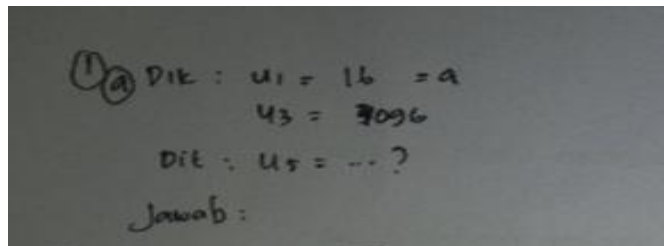 ① ⓐ Dik : u1 = 16 = a
u3 = 4096
Dit : u5 = ... ?
Jawab :